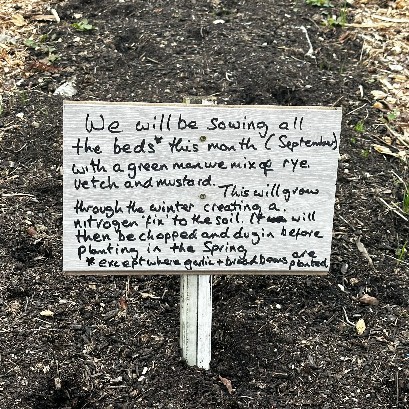 We will be sowing all
the beds* this month (September)
with a green manure mix of rye,
vetch and mustard. This will grow
through the winter creating a
nitrogen 'fix' to the soil. It will
then be chopped and dug in before
planting in the Spring
* except where garlic + broad beans are planted